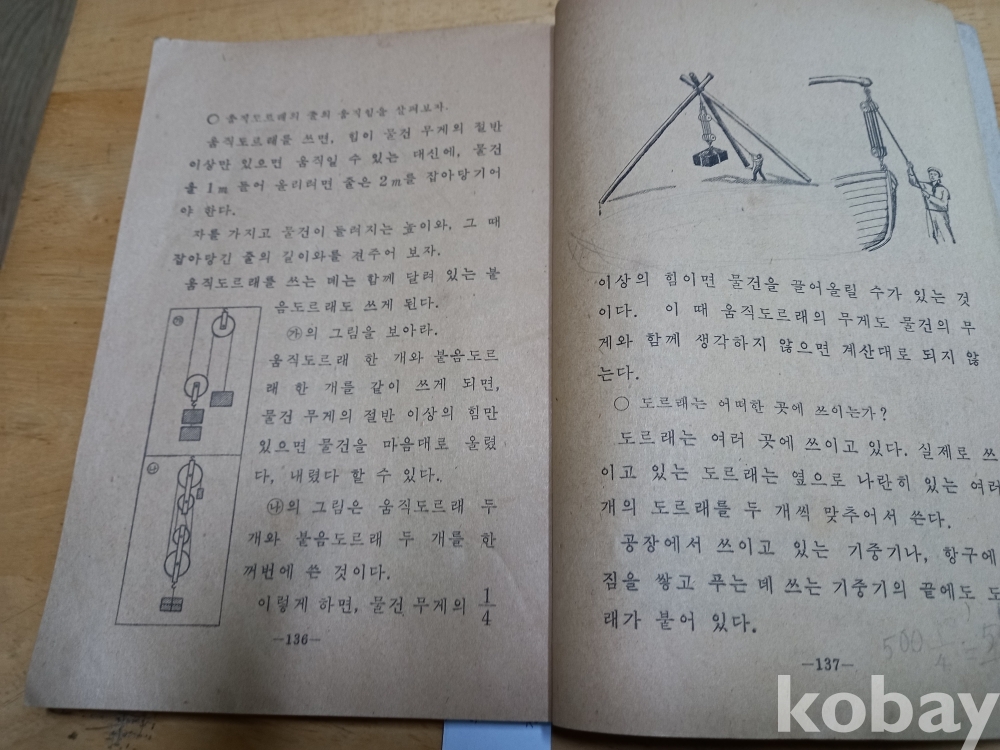 ○ 움직도르래의 줄의 움직임을 살펴보자.
움직도르래를 쓰면, 힘이 물건 무게의 절반
이상만 있으면 움직일 수 있는 대신에, 물건
을 1m 들어 올리려면 줄은 2m를 잡아당기어
야 한다.
자를 가지고 물건이 들려지는 높이와, 그 때
잡아당긴 줄의 길이와를 견주어 보자.
움직도르래를 쓰는 데는 함께 달려 있는 붙
음도르래도 쓰게 된다.
㉮의 그림을 보아라.
움직도르래 한 개와 붙음도르
래 한 개를 같이 쓰게 되면,
물건 무게의 절반 이상의 힘만
있으면 물건을 마음대로 올렸
다, 내렸다 할 수 있다.
㉯의 그림은 움직도르래 두
개와 붙음도르래 두 개를 한
꺼번에 쓴 것이다.
이렇게 하면, 물건 무게의 1/4
㉮
㉯
—136—
이상의 힘이면 물건을 끌어올릴 수가 있는 것
이다. 이 때 움직도르래의 무게도 물건의 무
게와 함께 생각하지 않으면 계산대로 되지 않
는다.
○ 도르래는 어떠한 곳에 쓰이는가?
도르래는 여러 곳에 쓰이고 있다. 실제로 쓰
이고 있는 도르래는 옆으로 나란히 있는 여러
개의 도르래를 두 개씩 맞추어서 쓴다.
공장에서 쓰이고 있는 기중기나, 항구에
짐을 쌓고 푸는 데 쓰는 기중기의 끝에도 도
래가 붙어 있다.
500
—137—
kobay